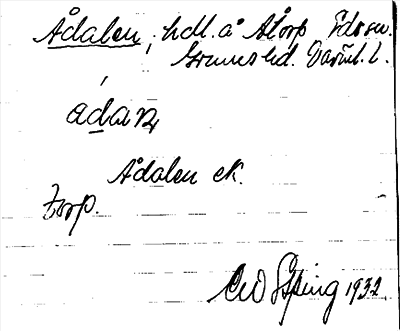 Ådalen, hdl. å Åtorp Edsv.
Grums hd. Värml. l.
ádaɳ
Ådalen ek.
torp.
1932